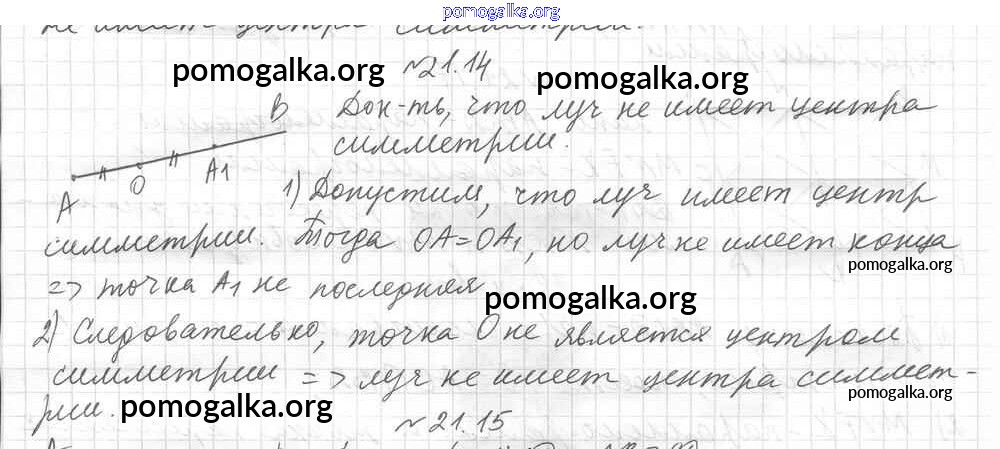 pomogalka.org
не имеет центра симметрии.
№21.14
pomogalka.org
pomogalka.org
B
Док-ть, что луч не имеет центра
симметрии.
A O A1
1) Допустим, что луч имеет центр
симметрии. Тогда OA=OA1, но луч не имеет конца
pomogalka.org
=> точка A1 не последняя
pomogalka.org
2) Следовательно, точка O не является центром
симметрии => луч не имеет центра симмет-
рии.
pomogalka.org
№21.15